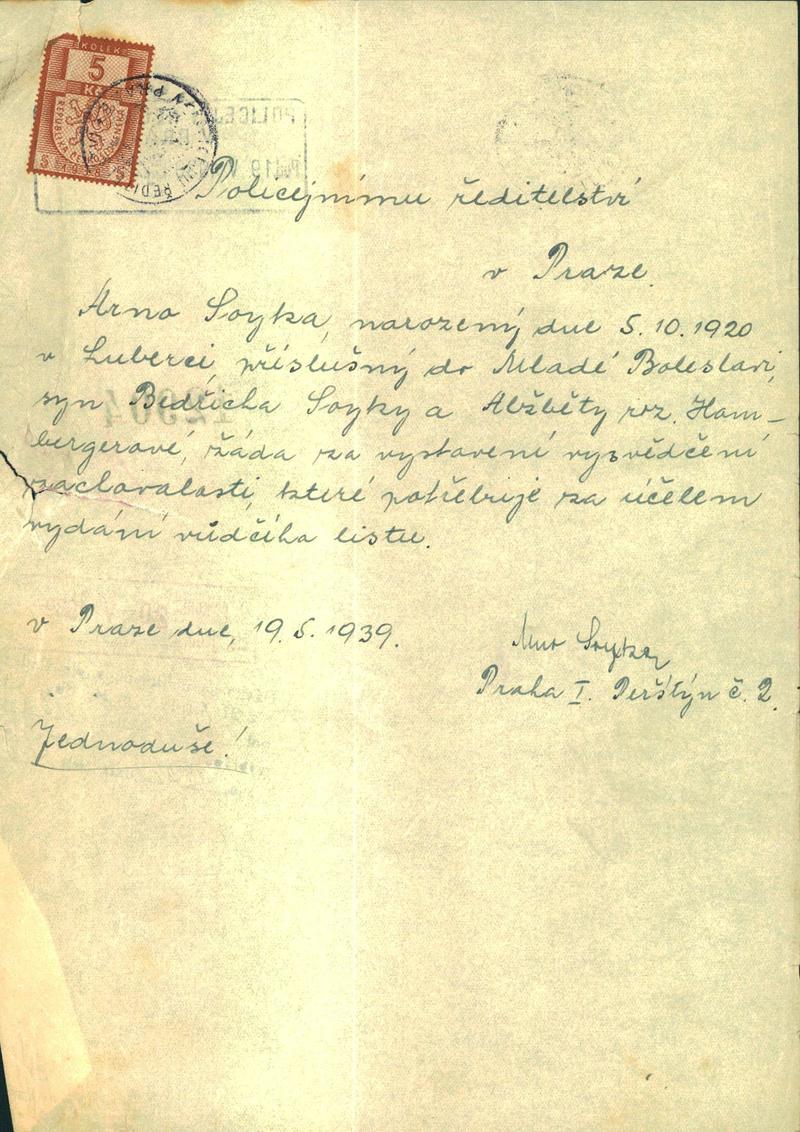 KOLEK
5
Kč
REPUBLIKA ČESKOSLOVENSKÁ
Policejnímu ředitelství
v Praze.
Arno Soyka, narozený dne 5.10.1920
v Liberci, příslušný do Mladé Boleslavi,
syn Bedřicha Soyky a Alžběty roz. Ham-
bergerové, žádá za vystavení vysvědčení
zachovalosti, které potřebuje za účelem
vydání vůdčího listu.
v Praze dne, 19.5.1939.
Arno Soyka
Praha I. Perštýn č. 2.
Jednoduše!